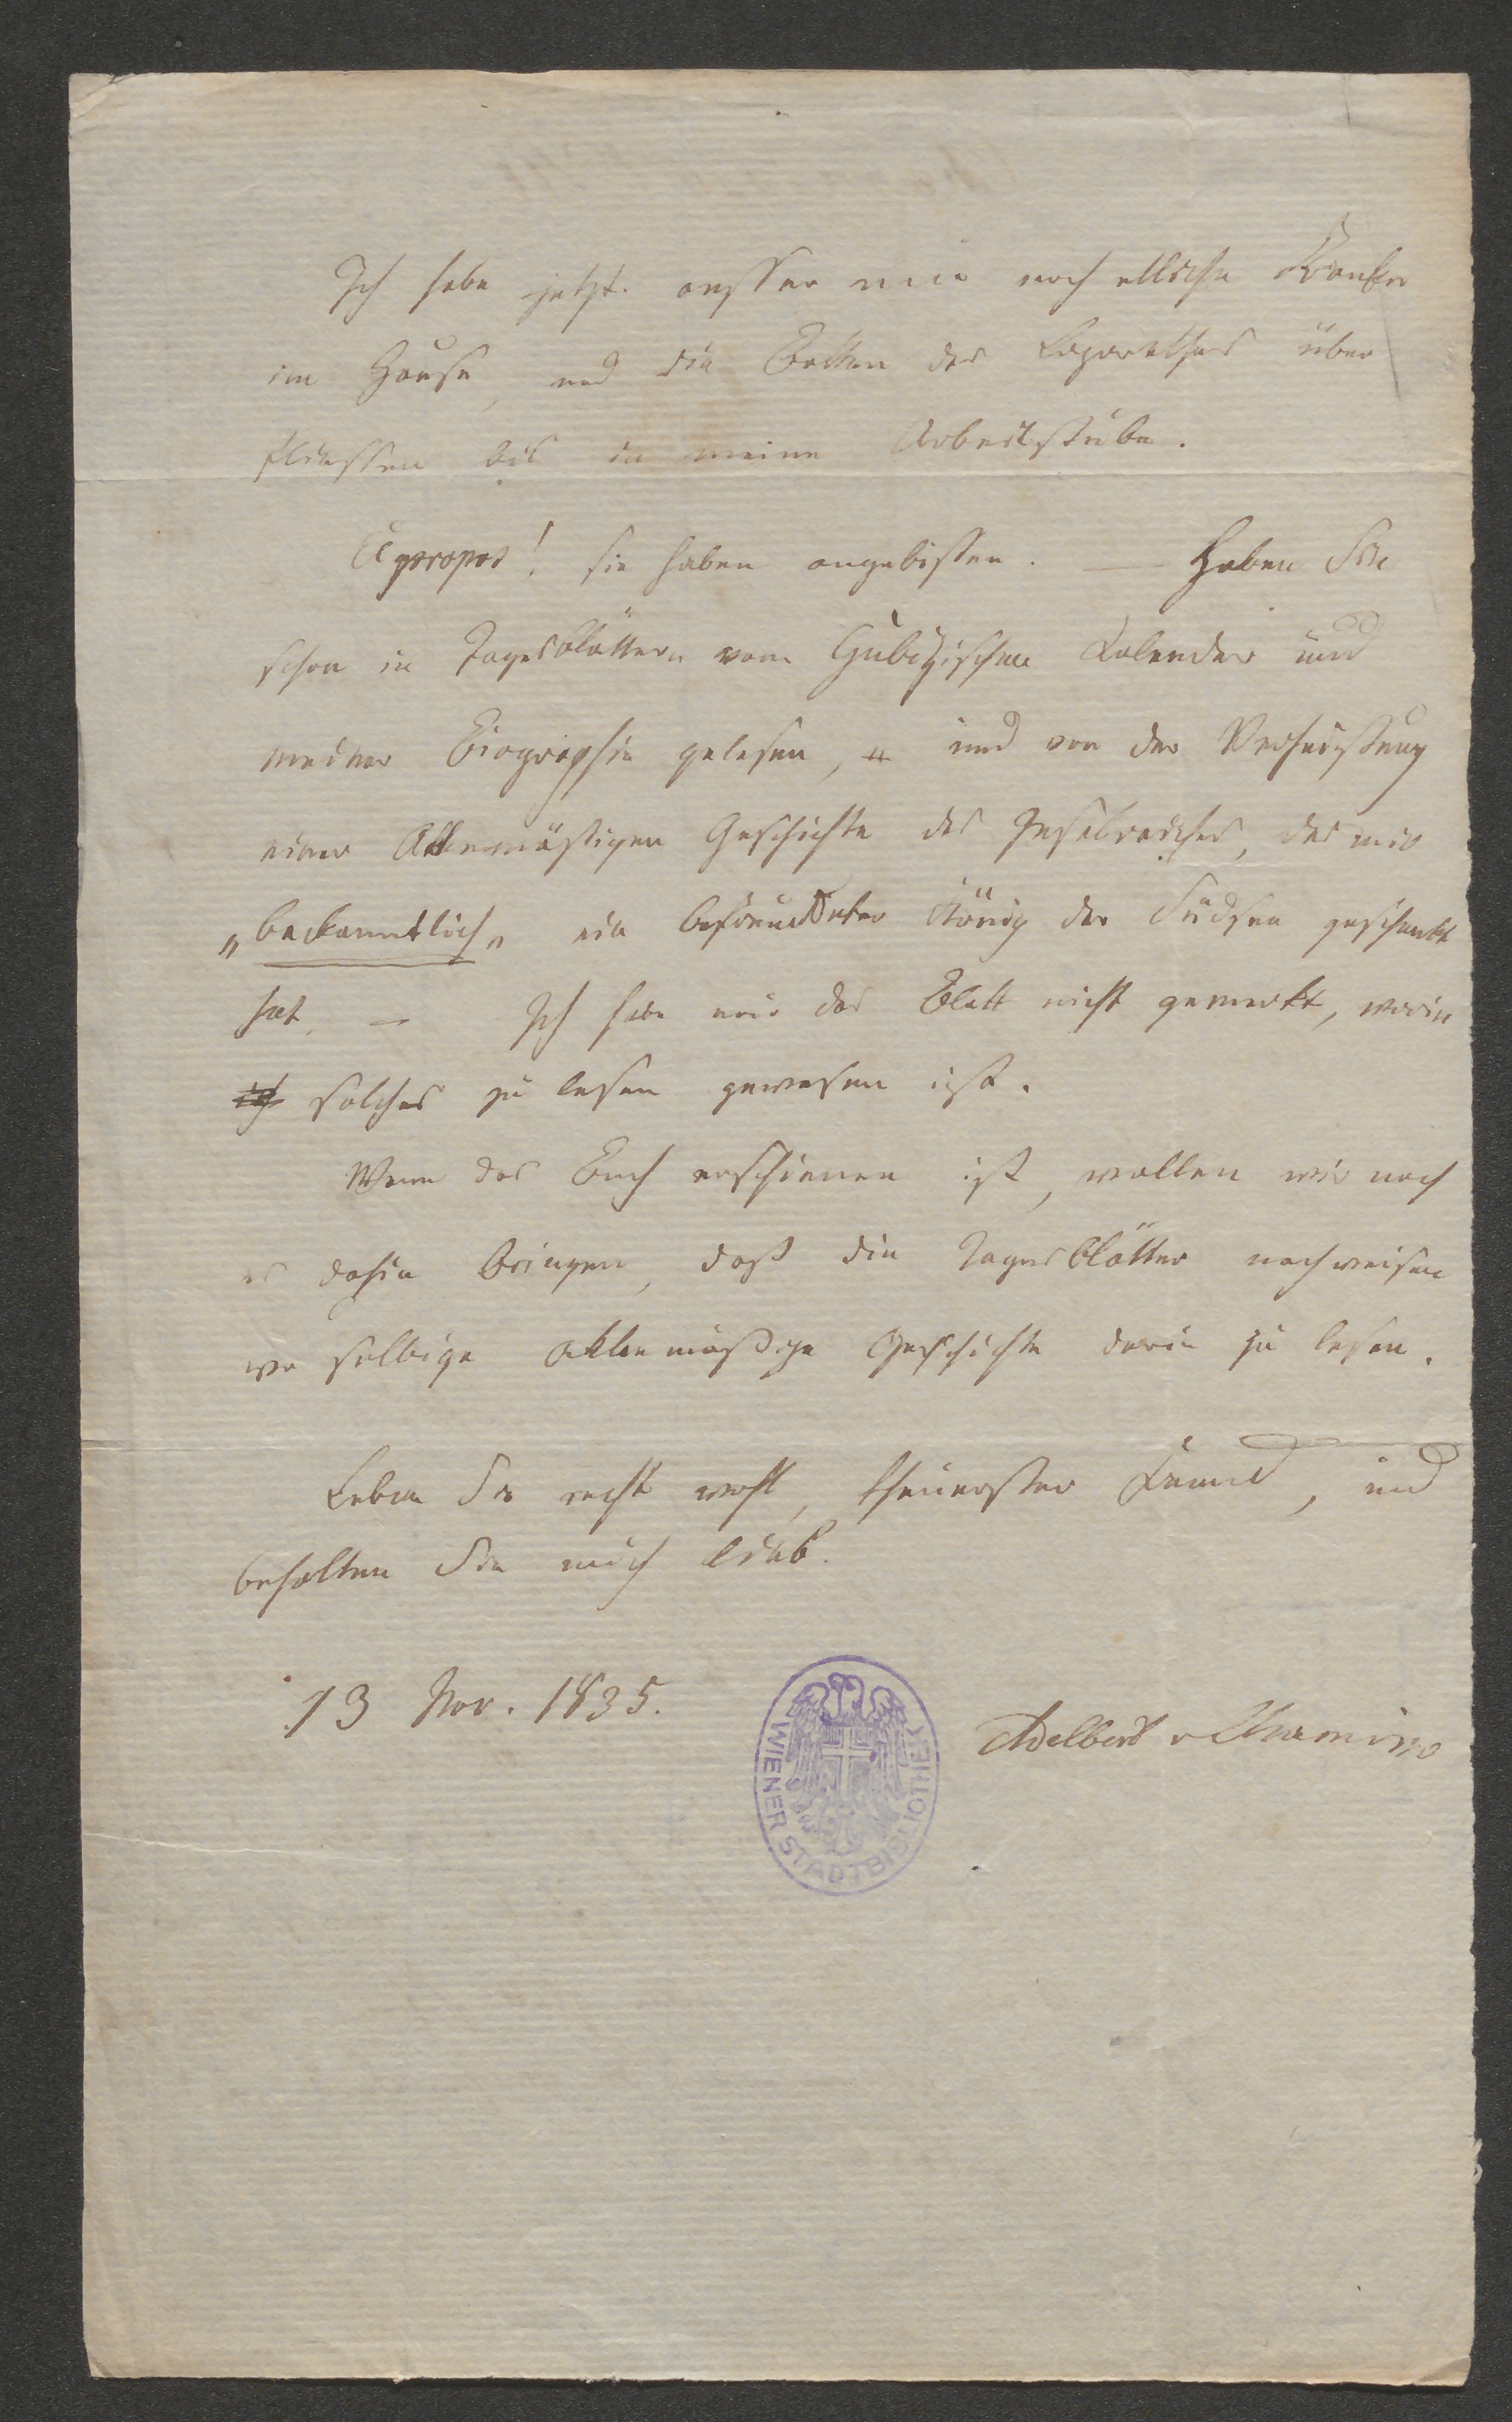 Ich habe jetzt ausser mir noch etliche Kranke
im Hause, und die Betten des Lazarethes über
fliessen bis in meine Arbeitstube.
Apropos! sie haben angebissen. — Haben Sie
schon in Tagesblättern vom Gubitzischen Kalender und
meiner Biographie gelesen, und von der Verheissung
einer Aktenmäßigen Geschichte des Inselreiches, das mir
„bekanntlich„ ein befreundeter König der Südsee geschenkt
hat. — Ich habe mir das Blatt nicht gemerkt, worin
solches zu lesen gewesen ist.
Wenn das Buch erschienen ist, wollen wir noch
es dahin bringen, daß die Tagesblätter nachweisen
wo selbige aktenmäßige Geschichte darin zu lesen.
Leben Sie recht wohl, theuerster Freund, und
behalten Sie mich lieb.
13 Nov. 1835.
Adelbert v Chamisso
WIENER STADTBIBLIOTHEK